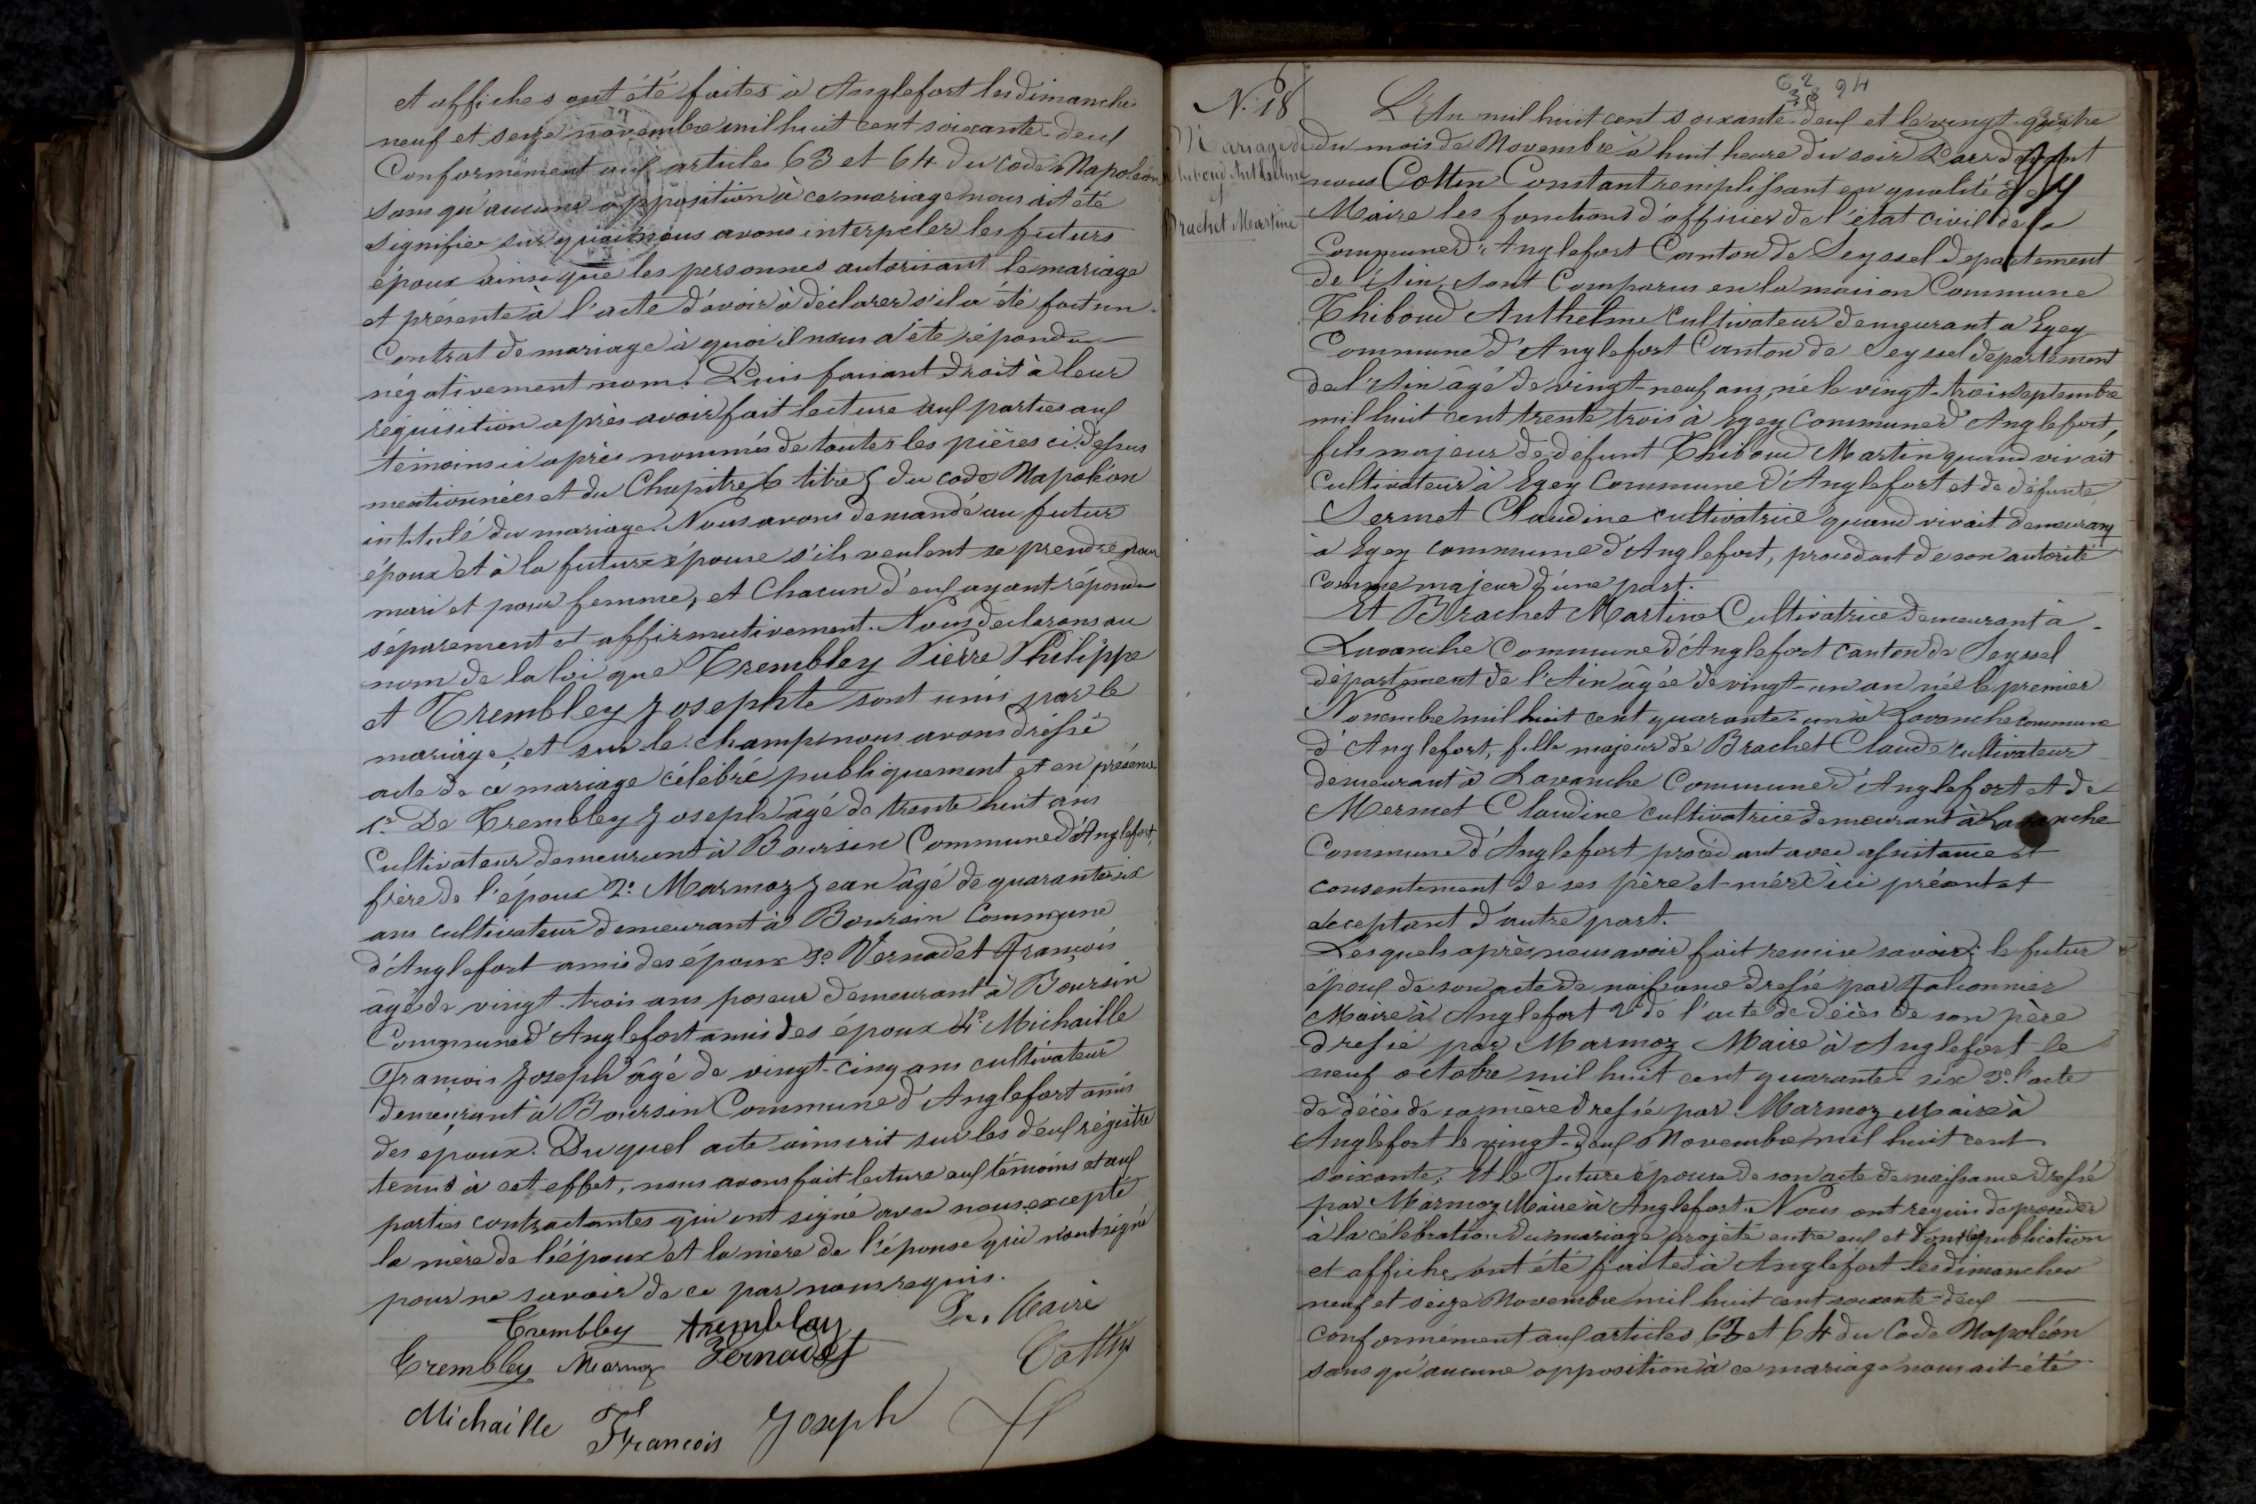 et affiches ont été faites à Anglefort les dimanche
neuf et seize novembre mil huit cent soixante-deux
Conformément aux articles 63 et 64 du code Napoléon
sans qu'aucune opposition à ce mariage nous ait été
signifiée sur quoi nous avons interpeler les futurs
époux ainsi que les personnes autorisant le mariage
et présente à l'acte d'avoir à déclarer s'il a été fait un
Contrat de mariage à quoi il nous a été répondu
négativement nom. Puis faisant droit à leur
réquisition après avoir fait lecture aux parties aux
témoins ci après nommés de toutes les pièces ci-dessus
mentionnées et du Chapitre 6 titre 5 du code Napoléon
intitulé du mariage. Nous avons demandé au futur
époux et à la future épouse s'ils veulent se prendre pour
mari et pour femme, et Chacun d'eux ayant répondu
séparement et affirmativement. Nous déclarons au
nom de la loi que Trembley Pierre Philippe
et Trembley Josephte sont unis par le
mariage, et sur le champ nous avons dressé
acte de ce mariage célébré publiquement et en présence
1º De Trembley Joseph âgé de trente huit ans
Cultivateur demeurant à Boursin Commune d'Anglefort,
frère de l'époux 2º Marmoz Jean âgé de quarante six
ans cultivateur demeurant à Boursin Commune
d'Anglefort amis des époux 3º Vernadet François
âgé de vingt-trois ans poseur demeurant à Boursin
Commune d'Anglefort amis des époux 4º Michaille
François Joseph âgé de vingt-cinq ans cultivateur
demeurant à Boursin Commune d'Anglefort amis
des époux. Du quel acte ainscrit sur les deux régistre
tenus à cet effet, nous avons fait lecture aux témoins et aux
parties contractantes qui ont signé avec nous excepté
la mère de l'époux et la mère de l'épouse qui n'ont signé
pour ne savoir de ce par nous requis.
Trembley Trembley Le Maire
Trembley Marmoz Vernadet Cottin
Michaille François Joseph
62 94
N. 18
Mariage de
Thiboud Anthelme
Brachet Martine
L'An mil huit cent soixante-deux et le vingt-quatre
du mois de Novembre à huit heure du soir Parr devant
nous Cottin Constant remplissant en qualité de
Maire les fonctions d'officier de l'état civil de la
Commune d'Anglefort Canton de Seyssel departement
de l'Ain, sont Comparus en la maison Commune
Thiboud Anthelme Cultivateur demeurant a Egey
Commune d'Anglefort Canton de Seyssel departement
de l'Ain âgé de vingt-neuf ans, né le vingt-trois septembre
mil huit cent trente trois à Egey Commune d'Anglefort,
fils majeur de défunt Thiboud Martin quand vivait
Cultivateur à Egey Commune d'Anglefort et de défunte
Sermet Claudine cultivatrice quand vivait demeurant
à Egey commune d'Anglefort, procedant de son autorité
comme majeur d'une part.
Et Brachet Martine Cultivatrice demeurant à
Lavanche Commune d'Anglefort canton de Seyssel
département de l'Ain âgée de vingt-un an née le premier
Novembre mil huit cent quarante-un à Lavanche commune
d'Anglefort, fille majeur de Brachet Claude cultivateur
demeurant à Lavanche Commune d'Anglefort et de
Mermet Claudine cultivatrice demeurant à Lavanche
Commune d'Anglefort procédant avec assistance et
consentement de ses père et mère ici présent et
acceptant d'autre part.
Lesquels après nous avoir fait remise savoir: le futur
époux de son acte de naissance dressé par Falconnier
Maire à Anglefort 2º de l'acte de décès de son père
dressé par Marmoz Maire à Anglefort le
neuf octobre mil huit cent quarante-six 3º l'acte
de décès de sa mère dressé par Marmoz Maire à
Anglefort le vingt-deux Novembre mil huit cent
soixante, et la Future épouse de son acte de naissance dressé
par Marmoz Maire à Anglefort. Nous ont requis de proceder
à la célébration du mariage projeté entre eux et dont les publication
et affiche ont été faite à Anglefort les dimanches
neuf et seize Novembre mil huit cent soixante-deux
conformément aux articles 63 et 64 du Code Napoléon
sans qu'aucune opposition à ce mariage nous ait été